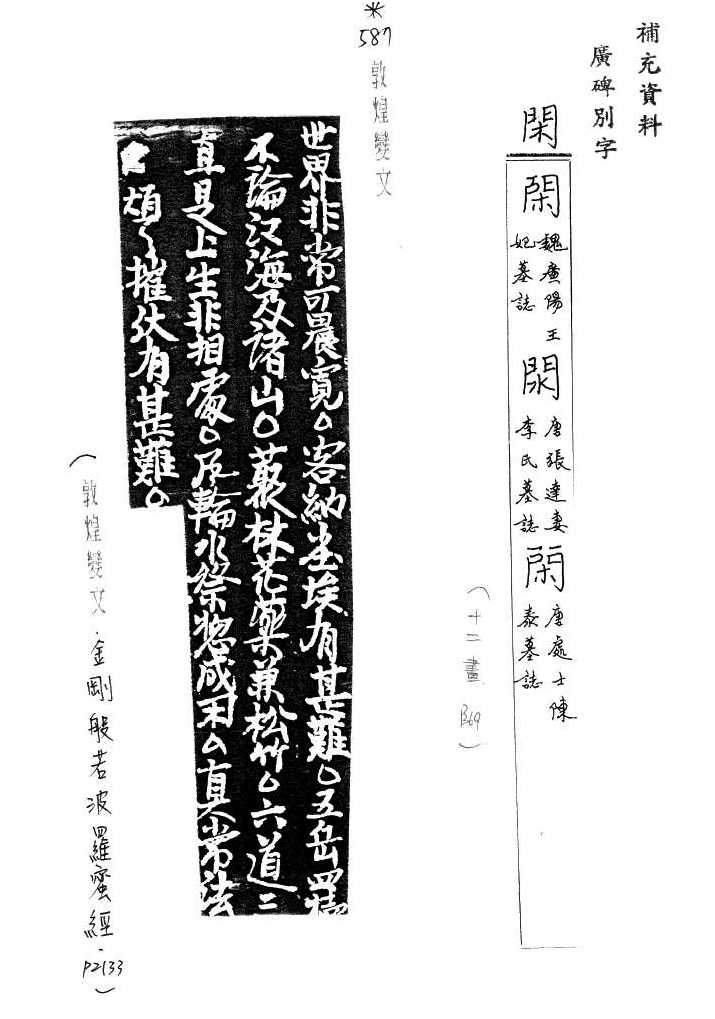 補充資料
廣碑別字
閑
閑 魏廣陽王妃墓誌
閑 唐張達妻李氏墓誌
閑 唐處士陳泰墓誌
(十二畫 B69)
※587 敦煌變文
世界非常可晨寬。容納塵埃有甚難。五岳
不論江海及諸山。叢林花藥兼松竹。六道二
直是上生非相處。風輪水祭惣成閑。真常法
煩〻摧伏有甚難。
(敦煌變文.金剛般若波羅蜜經.P2133)